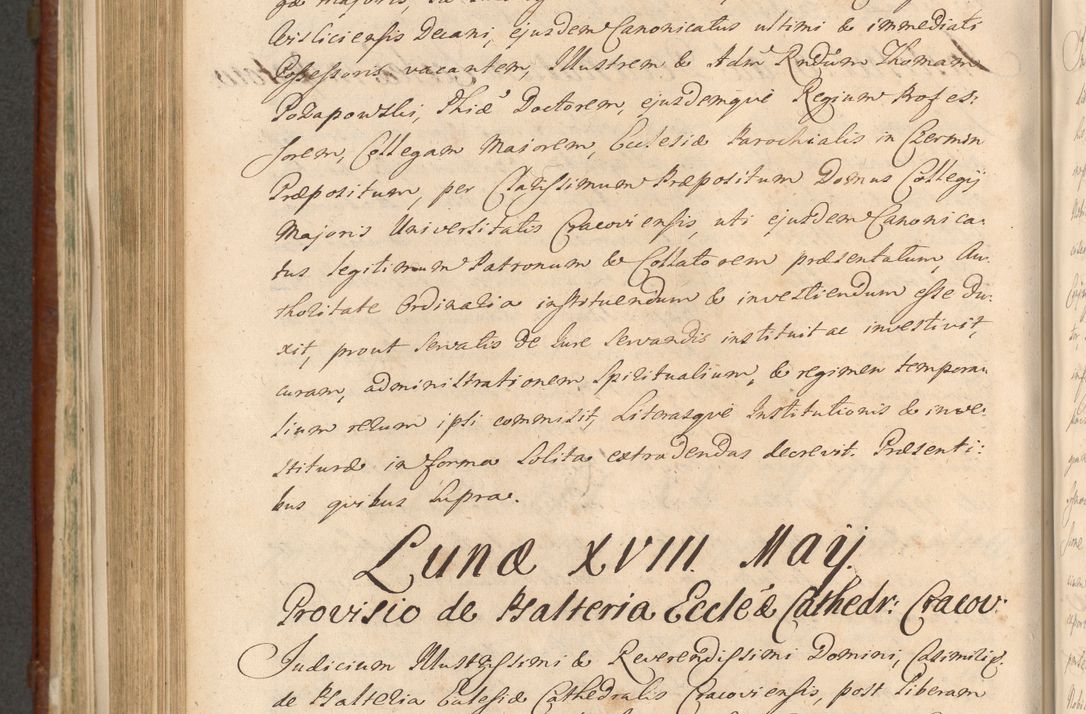 Visliciensis Decani, ejusdem Canonicatus ultimi & immediati
Possessoris vacantem, Illustrem & Adm Rndum Thomam
Pozapowski, Phiæ Doctorem, ejusdemque Regium Profes:
sorem, Collegam Majorem, Ecclesiæ Parochialis in Czermin
Præpositum, per Clarissimum Præpositum Domus Collegij
Majoris Universitatis Cracoviensis, uti ejusdem Canonica:
tus legitimum Patronum & Collatorem præsentatum, Au:
thoritate Ordinaria instituendum & investiendum esse du:
xit, prout servatis de Jure servandis instituit ac investivit,
curam, administrationem spiritualium, & regimen tempora:
lium rerum ipsi commisit, Literasque Institutionis & inve:
stituræ in forma solita extradendas decrevit. Præsenti:
bus quibus supra.
Lunæ XVIII Maij.
Provisio de Psalteria Eccl̃æ Cathedr: Cracov:
Judicium Illustrissimi & Reverendissimi Domini,
de Psalteria Ecclesiæ Cathedralis Cracoviensis, post liberam